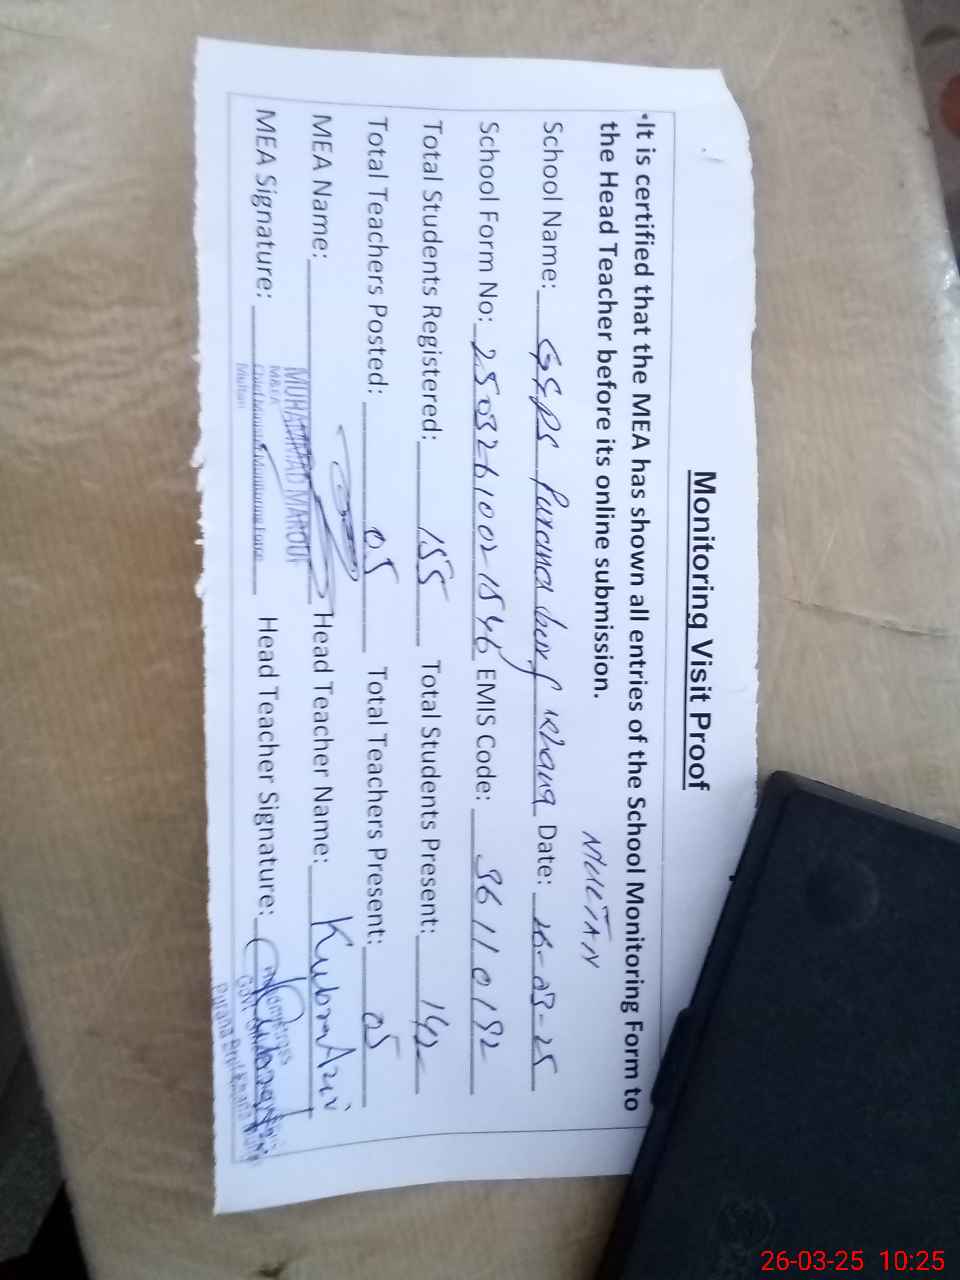 Monitoring Visit Proof
•It is certified that the MEA has shown all entries of the School Monitoring Form to
the Head Teacher before its online submission.
MULTAN
School Name: GGPS Purana Khana Date: 26-03-25
School Form No: 25032610021546 EMIS Code: 36110192
Total Students Registered: 155 Total Students Present: 142
Total Teachers Posted: 05 Total Teachers Present: 05
MEA Name: MUHAMMAD MAROUF Head Teacher Name: Kubra
MEA Signature: Head Teacher Signature:
M&EA
Chief Minister Monitoring Force
Multan
Headmistress
Govt.
Purana
26-03-25 10:25